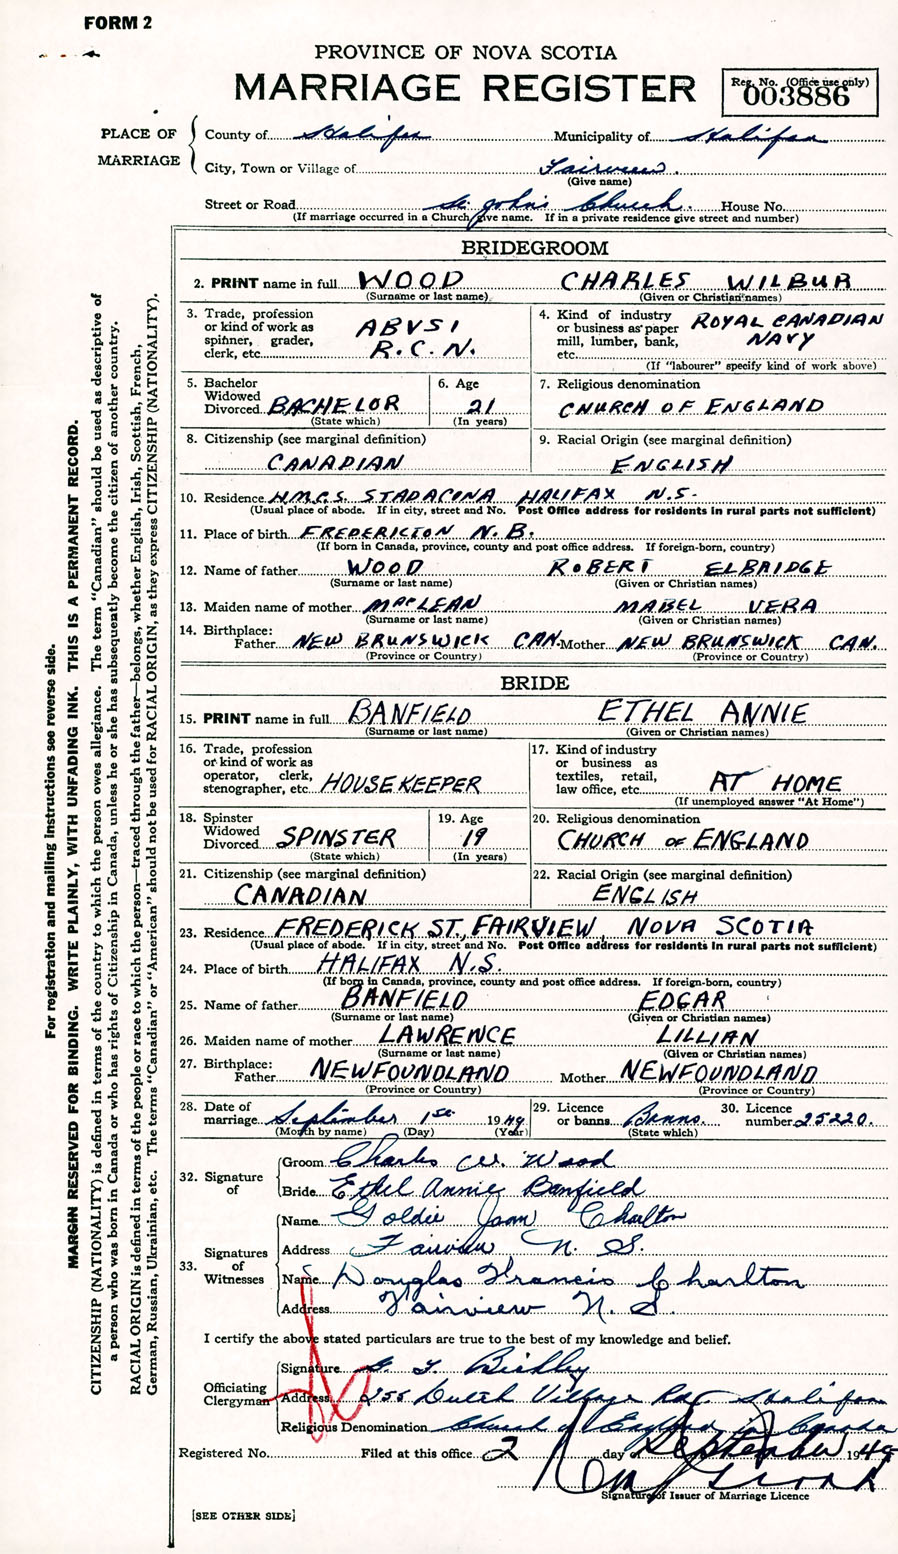 FORM 2
PROVINCE OF NOVA SCOTIA
MARRIAGE REGISTER
Reg. No. (Office use only)
003886
PLACE OF MARRIAGE
County of Halifax Municipality of Halifax
City, Town or Village of Fairview.
(Give name)
Street or Road St. John's Church. House No.
(If marriage occurred in a Church give name. If in a private residence give street and number)
BRIDEGROOM
2. PRINT name in full WOOD CHARLES WILBUR
(Surname or last name) (Given or Christian names)
3. Trade, profession or kind of work as spinner, grader, clerk, etc. ABVS1 R.C.N.
4. Kind of industry or business as paper mill, lumber, bank, etc. ROYAL CANADIAN NAVY
(If "labourer" specify kind of work above)
5. Bachelor Widowed Divorced BACHELOR
(State which)
6. Age 21
(In years)
7. Religious denomination
CHURCH OF ENGLAND
8. Citizenship (see marginal definition)
CANADIAN
9. Racial Origin (see marginal definition)
ENGLISH
10. Residence H.M.C.S. STADACONA HALIFAX N.S.
(Usual place of abode. If in city, street and No. Post Office address for residents in rural parts not sufficient)
11. Place of birth FREDERICTON N.B.
(If born in Canada, province, county and post office address. If foreign-born, country)
12. Name of father WOOD ROBERT ELBRIDGE
(Surname or last name) (Given or Christian names)
13. Maiden name of mother MACLEAN MABEL VERA
(Surname or last name) (Given or Christian names)
14. Birthplace:
Father NEW BRUNSWICK CAN. Mother NEW BRUNSWICK CAN.
(Province or Country) (Province or Country)
BRIDE
15. PRINT name in full BANFIELD ETHEL ANNIE
(Surname or last name) (Given or Christian names)
16. Trade, profession or kind of work as operator, clerk, stenographer, etc. HOUSEKEEPER
17. Kind of industry or business as textiles, retail, law office, etc. AT HOME
(If unemployed answer "At Home")
18. Spinster Widowed Divorced SPINSTER
(State which)
19. Age 19
(In years)
20. Religious denomination
CHURCH OF ENGLAND
21. Citizenship (see marginal definition)
CANADIAN
22. Racial Origin (see marginal definition)
ENGLISH
23. Residence FREDERICK ST, FAIRVIEW, NOVA SCOTIA
(Usual place of abode. If in city, street and No. Post Office address for residents in rural parts not sufficient)
24. Place of birth HALIFAX N.S.
(If born in Canada, province, county and post office address. If foreign-born, country)
25. Name of father BANFIELD EDGAR
(Surname or last name) (Given or Christian names)
26. Maiden name of mother LAWRENCE LILLIAN
(Surname or last name) (Given or Christian names)
27. Birthplace:
Father NEWFOUNDLAND Mother NEWFOUNDLAND
(Province or Country) (Province or Country)
28. Date of marriage September 1st 1949
(Month by name) (Day) (Year)
29. Licence or banns Banns.
(State which)
30. Licence number 25220.
32. Signature of
Groom Charles W. Wood
Bride Ethel Annie Banfield
33. Signatures of Witnesses
Name Goldie Joan Charlton
Address Fairview N. S.
Name Douglas Francis Charlton
Address Fairview N. S.
I certify the above stated particulars are true to the best of my knowledge and belief.
Officiating Clergyman
Signature
Address 255 Dutch Village Rd. Halifax
Religious Denomination Church of England in Canada
Registered No. Filed at this office 2 day of September 1949
Signature of Issuer of Marriage Licence
[SEE OTHER SIDE]
For registration and mailing instructions see reverse side.
MARGIN RESERVED FOR BINDING. WRITE PLAINLY, WITH UNFADING INK. THIS IS A PERMANENT RECORD.
CITIZENSHIP (NATIONALITY) is defined in terms of the country to which the person owes allegiance. The term "Canadian" should be used as descriptive of
a person who was born in Canada or who has rights of Citizenship in Canada, unless he or she has subsequently become the citizen of another country.
RACIAL ORIGIN is defined in terms of the people or race to which the person—traced through the father—belongs, whether English, Irish, Scottish, French,
German, Russian, Ukrainian, etc. The terms "Canadian" or "American" should not be used for RACIAL ORIGIN, as they express CITIZENSHIP (NATIONALITY).